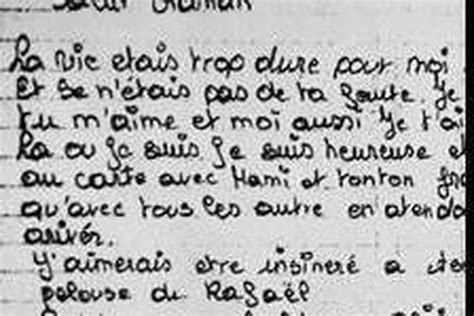 Salut Maman
La vie etais trop dure pour moi
Et se n'étais pas de ta faute. Je
tu m'aime et moi aussi Je t'ai
La ou Je suis Je suis heureuse e
au coite avec Mami et tonton
qu'avec tous les autre en atenda
arivér.
J'aimerais etre insineré a
pelouse de Rafaël